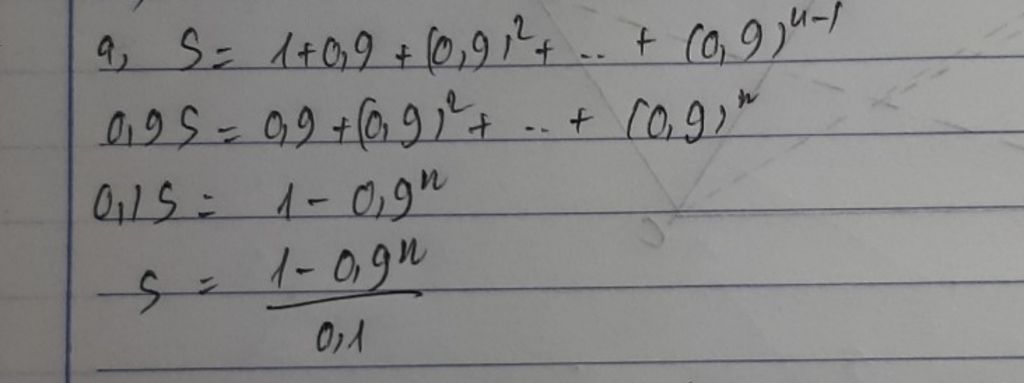 a, S = 1+0,9 + (0,9)² + .. + (0,9)ⁿ⁻¹
0,9S = 0,9 + (0,9)² + .. + (0,9)ⁿ
0,1S = 1 - 0,9ⁿ
S = 1 - 0,9ⁿ
0,1